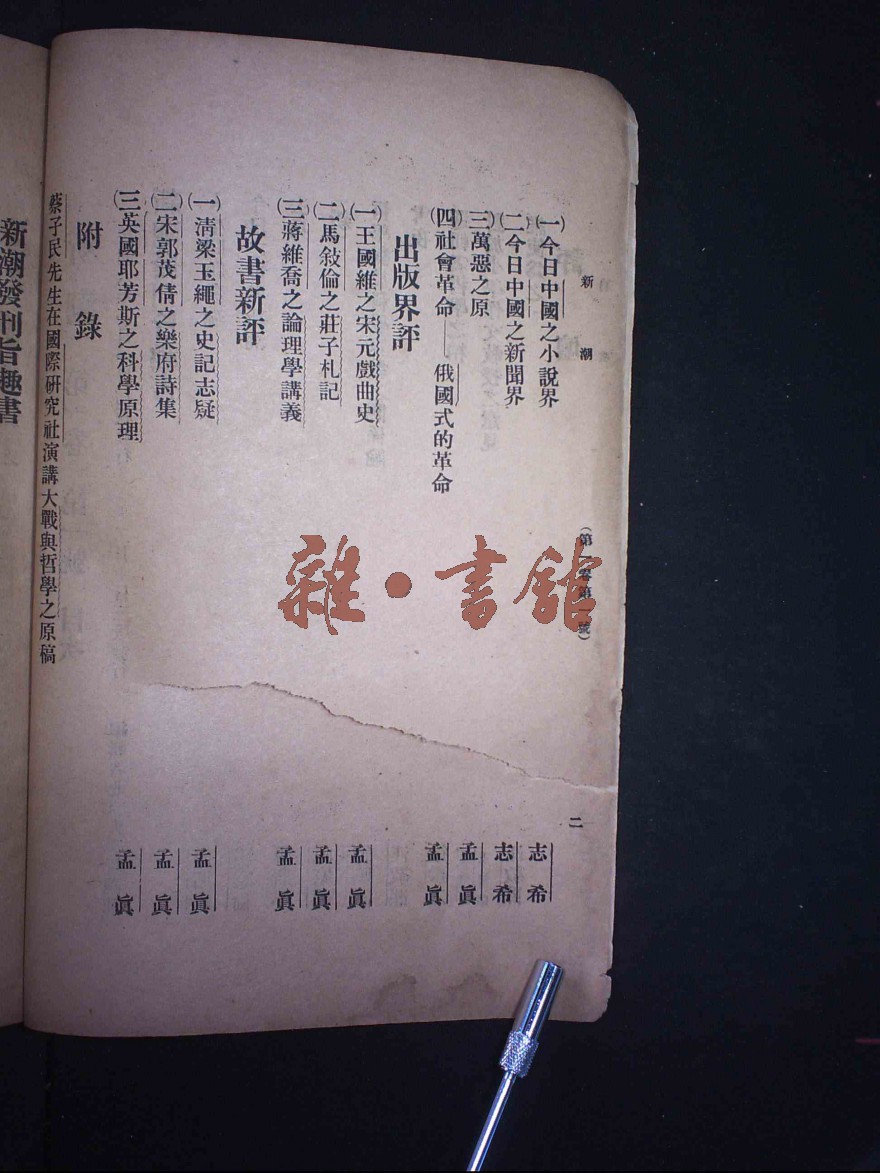 新潮 （第一卷第一號） 二
(一)今日中國之小說界 志希
(二)今日中國之新聞界 志希
(三)萬惡之原 孟眞
(四)社會革命──俄國式的革命 孟眞
出版界評
(一)王國維之宋元戲曲史 孟眞
(二)馬敍倫之莊子札記 孟眞
(三)蔣維喬之論理學講義 孟眞
故書新評
(一)淸梁玉繩之史記志疑 孟眞
(二)宋郭茂倩之樂府詩集 孟眞
(三)英國耶芳斯之科學原理 孟眞
附錄
蔡孑民先生在國際研究社演講大戰與哲學之原稿
新潮發刊旨趣書
雜·書館